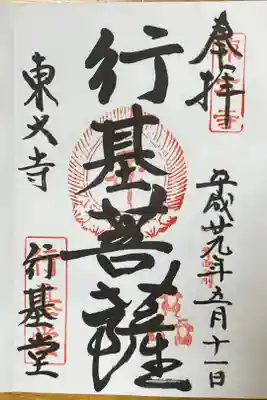 奉拝
平成廿九年五月十一日
行基菩薩
東大寺
行基堂